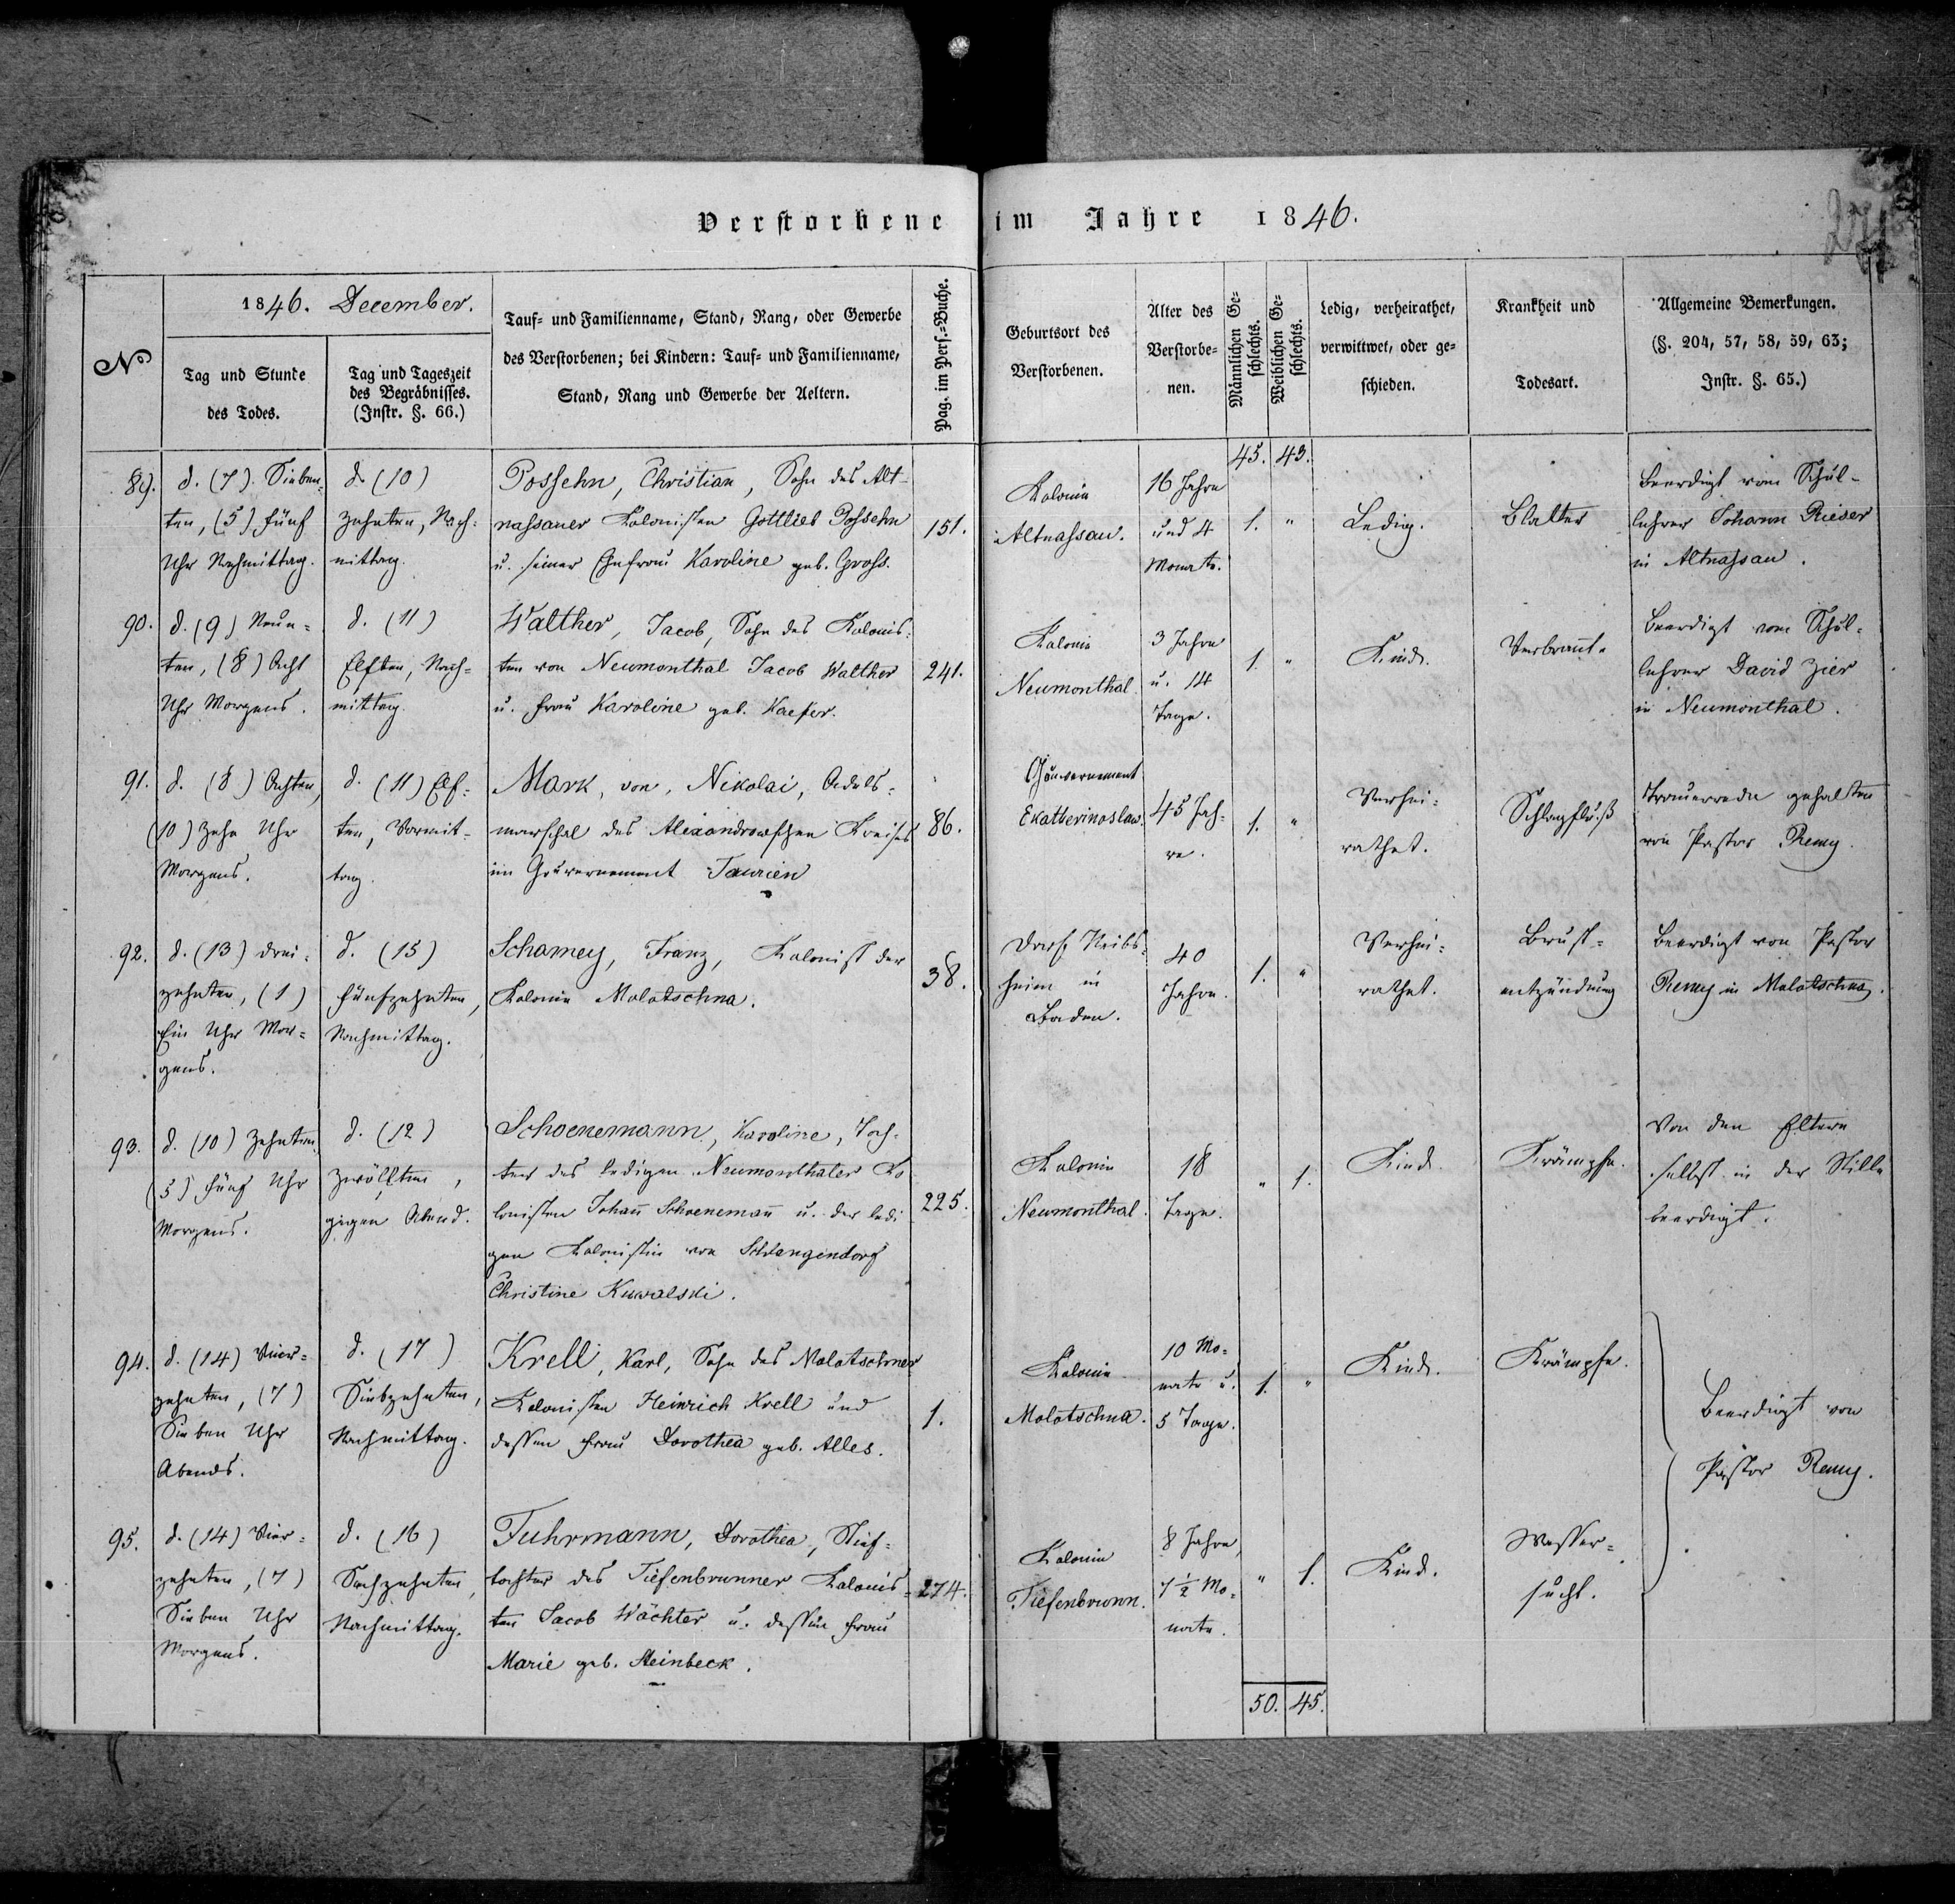 Verstorbene im Jahre 1846.
№
1846. December.
Tag und Stunde
des Todes.
Tag und Tageszeit
des Begräbnisses.
(Instr. §. 66.)
Tauf- und Familienname, Stand, Rang, oder Gewerbe
des Verstorbenen; bei Kindern: Tauf- und Familienname,
Stand, Rang und Gewerbe der Aeltern.
Pag. im Pers.-Buche.
Geburtsort des
Verstorbenen.
Alter des
Verstorbe-
nen.
Männlichen Ge-
schlechts.
Weiblichen Ge-
schlechts.
Ledig, verheirathet,
verwittwet, oder ge-
schieden.
Krankheit und
Todesart.
Allgemeine Bemerkungen.
(§. 204, 57, 58, 59, 63;
Instr. §. 65.)
45. 43.
89.
d. (7) Sieben-
ten, (5) fünf
Uhr Nachmittag.
d. (10)
Zehnten, Nach-
mittag.
Possehn, Christian, Sohn des Alt-
nassauer Kolonisten Gottlieb Possehn
u. seiner Ehefrau Karoline geb. Gross.
151.
Kolonie
Altnassau.
16 Jahre
und 4
Monate.
1. "
Ledig.
Blatter
Beerdigt vom Schul-
lehrer Johann Rieser
in Altnassau.
90.
d. (9) Neun-
ten, (8) Acht
Uhr Morgens.
d. (11)
Elften, Nach-
mittag.
Walther, Jacob, Sohn des Kolonis-
ten von Neumonthal Jacob Walther
u. Frau Karoline geb. Kaefer.
241.
Kolonie
Neumonthal.
3 Jahre
u. 14
Tage.
1. "
Kind.
Verbrannt.
Beerdigt vom Schul-
lehrer David Zier
in Neumonthal.
91.
d. (8) Achten,
(10) Zehn Uhr
Morgens.
d. (11) Elf-
ten, Vormit-
tag.
Mark, von, Nikolai, Adels-
marschal des Alexandrowschen Kreises
im Gouvernement Taurien
86.
Gouvernement
Ekatherinoslaw.
45 Jah-
re.
1. "
Verhei-
rathet.
Schlagfluß
Trauerrede gehalten
von Pastor Remy.
92.
d. (13) Drei-
zehnten, (1)
Ein Uhr Mor-
gens.
d. (15)
Fünfzehnten,
Nachmittag.
Schamey, Franz, Kolonist der
Kolonie Molotschna.
38.
Dorf
heim in
Baden.
40
Jahre.
1. "
Verhei-
rathet.
Brust-
entzündung
Beerdigt von Pastor
Remy in Molotschna.
93.
d. (10) Zehnten,
(5) Fünf Uhr
Morgens.
d. (12)
Zwölften,
gegen Abend.
Schoenemann, Karoline, Toch-
ter des ledigen Neumonthaler Ko
lonisten Johan̅ Schoeneman̅ u. der ledi
gen Kolonistin von Schlangendorf
Christine Kuwalski.
225.
Kolonie
Neumonthal.
18
Tage.
" 1.
Kind.
Krämpfe.
Von den Eltern
selbst in der Stille
beerdigt.
94.
d. (14) Vier-
zehnten, (7)
Sieben Uhr
Abends.
d. (17)
Siebzehnten,
Nachmittag.
Krell, Karl, Sohn des Molotschner
Kolonisten Heinrich Krell und
dessen Frau Dorothea geb. Alles.
1.
Kolonie
Molotschna.
10 Mo-
nate u.
5 Tage.
1. "
Kind.
Krämpfe.
Beerdigt von
Pastor Remy.
95.
d. (14) Vier-
zehnten, (7)
Sieben Uhr
Morgens.
d. (16)
Sechzehnten,
Nachmittag.
Fuhrmann, Dorothea, Stief-
tochter des Tiefenbrunner Kolonis-
ten Jacob Wächter u. dessen Frau
Marie geb. Steinbeck.
274.
Kolonie
Tiefenbrunn.
8 Jahre,
7 1/2 Mo-
nate.
" 1.
Kind.
Wasser-
sucht.
50. 45.